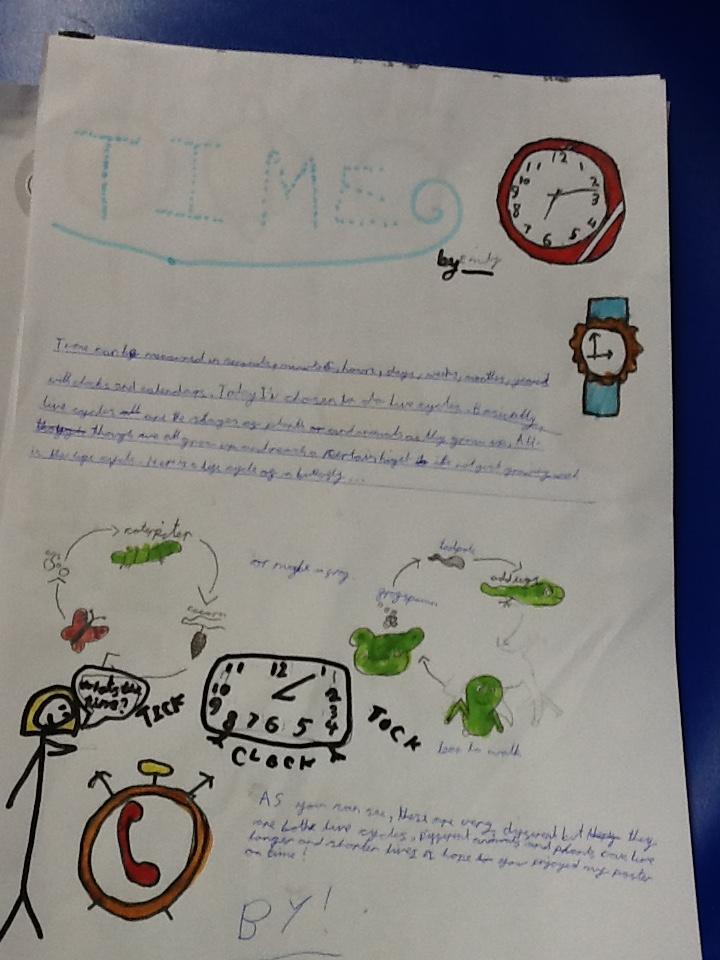 TIME
by Emily
12
11
10
9
8
7
6
5
4
3
2
Time can be measured in seconds, minutes, hours, days, weeks, months, years
with clocks and calendars. Today I's chosen to do live cycles. Basically,
live cycles are the stages of plants or and animals as they grow up. Al-
though we all grow up and reach a certain its not just growing need
is the life cycle. Here is a life cycle of a butterfly...
caterpiller
cocoon
or maybe a frog
tadpole
addugs
frogspawn
lean to walk
What's the
time?
TICK
11 12 1
10 2
9 3
8 7 6 5 4
TOCK
CLOCK
As you can see, these are very different but they
are both live cycles. Different animals and plants have live
longer and shorter lives. I hope you enjoyed my poster
on time!
BY!